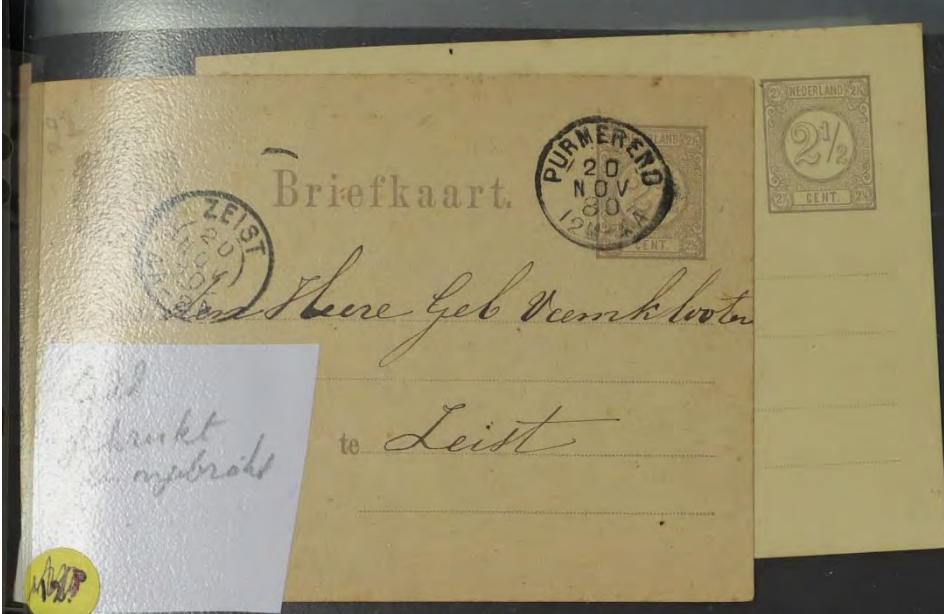 NEDERLAND
2½
CENT.
Briefkaart.
PURMEREND
20
NOV
80
12M-4A
CENT.
ZEIST
20
NOV
80
den Heere Geb Veemklooter
te Zeist
gebruikt